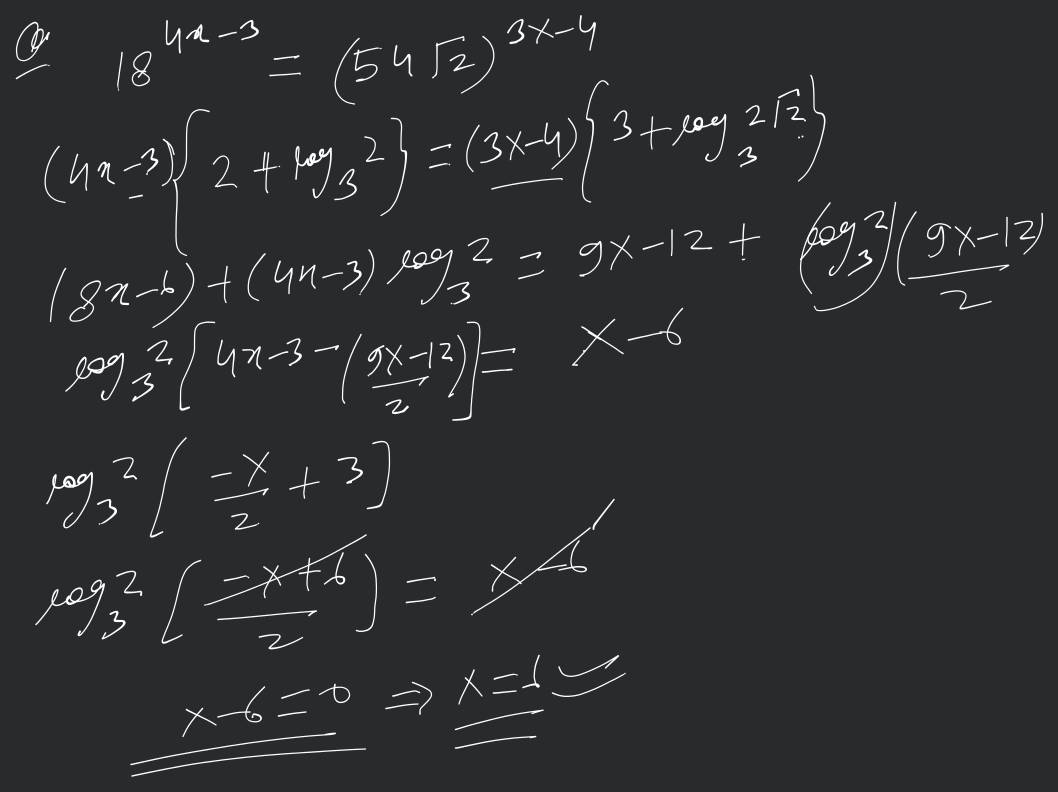 Q 18^{4x-3} = (54√2)^{3x-4}
(4x-3){2 + log_3 2} = (3x-4){3 + log_3 2√2}
(8x-6) + (4x-3) log_3 2 = 9x-12 + (log_3 2)((9x-12)/2)
log_3 2 [4x-3-((9x-12)/2)] = x-6
log_3 2 [-x/2 + 3]
log_3 2 [(-x+6)/2) = x-6
x-6=0 ⇒ x=6